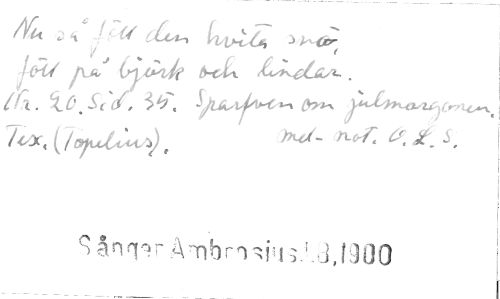 Nu så föll den hvita snö,
föll på björk och lindar.
Nr. 20. Sid. 35. Sparfven om julmorgonen.
Tex. (Topelius). mel- not. O. L. S.
Sånger Ambrosius I.B, 1900